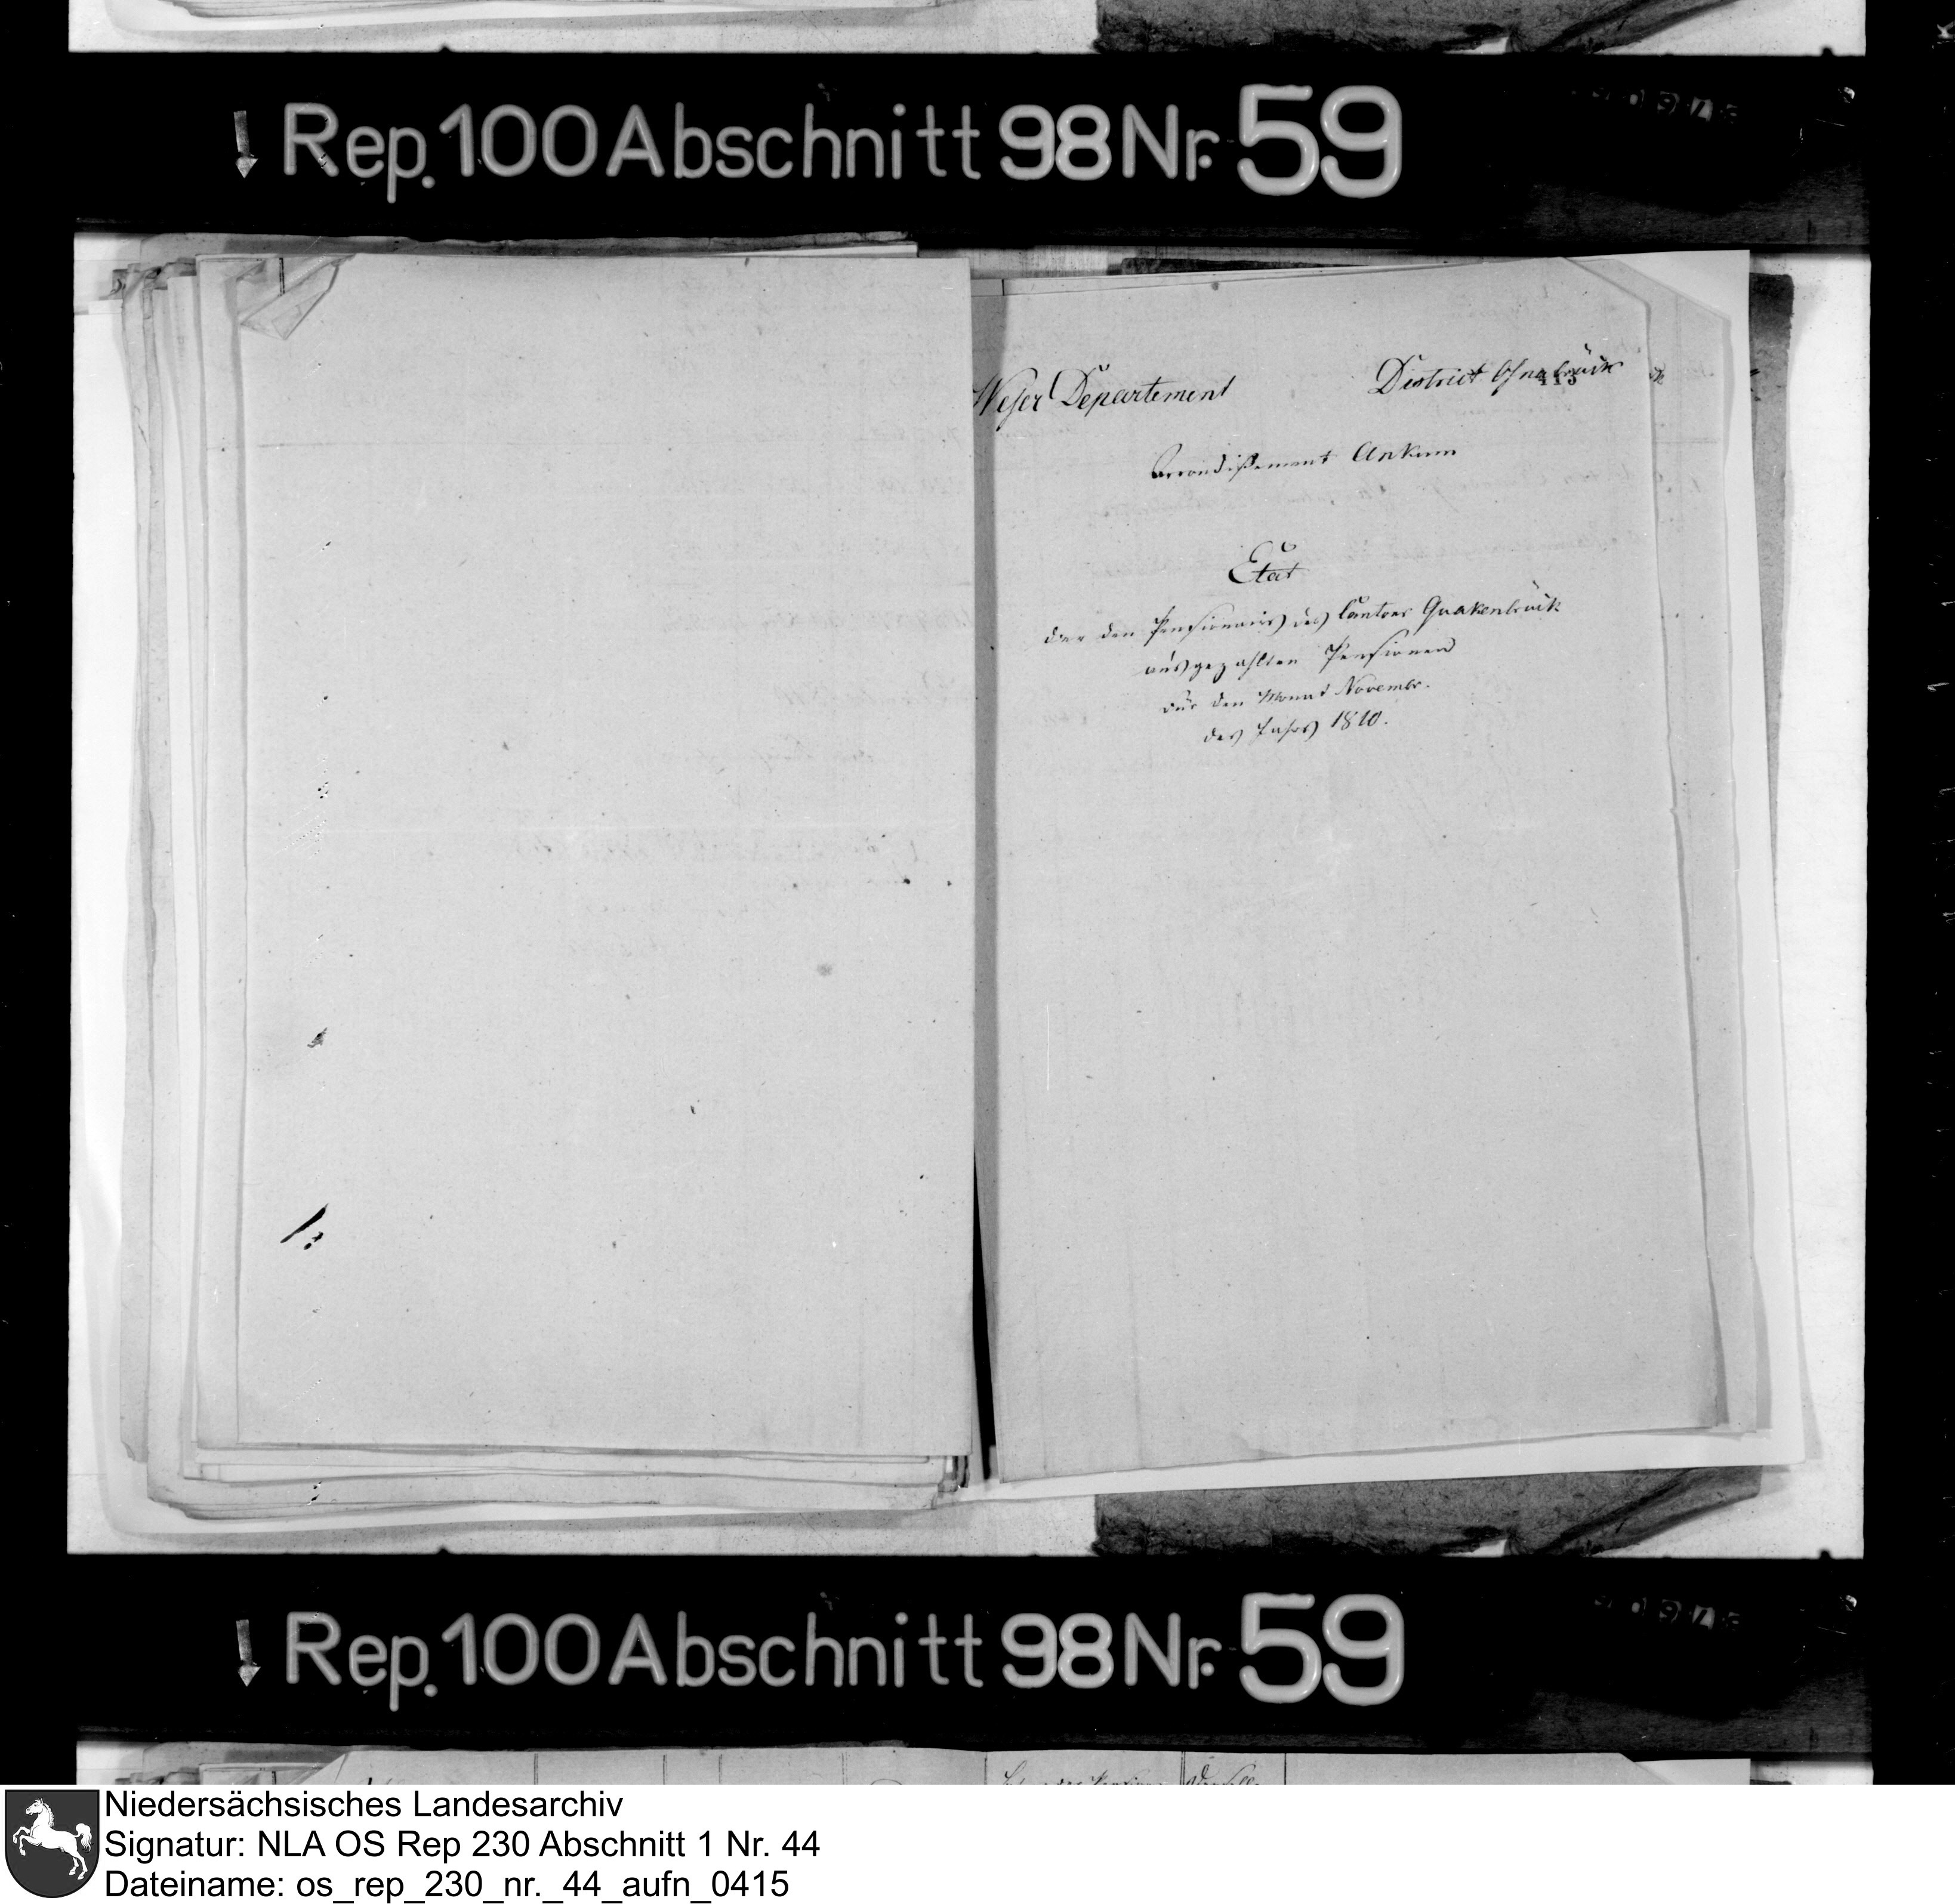 Rep. 100 Abschnitt 98 Nr. 59
Weser Departement
District Osnabrück
413
Arrondissement Ankum
Etat
der den Pensionairs des Cantons Quakenbrück
ausgezahlten Pensionen
für den Monat Novembr.
des Jahrs 1810.
Rep. 100 Abschnitt 98 Nr. 59
Niedersächsisches Landesarchiv
Signatur: NLA OS Rep 230 Abschnitt 1 Nr. 44
Dateiname: os_rep_230_nr._44_aufn_0415